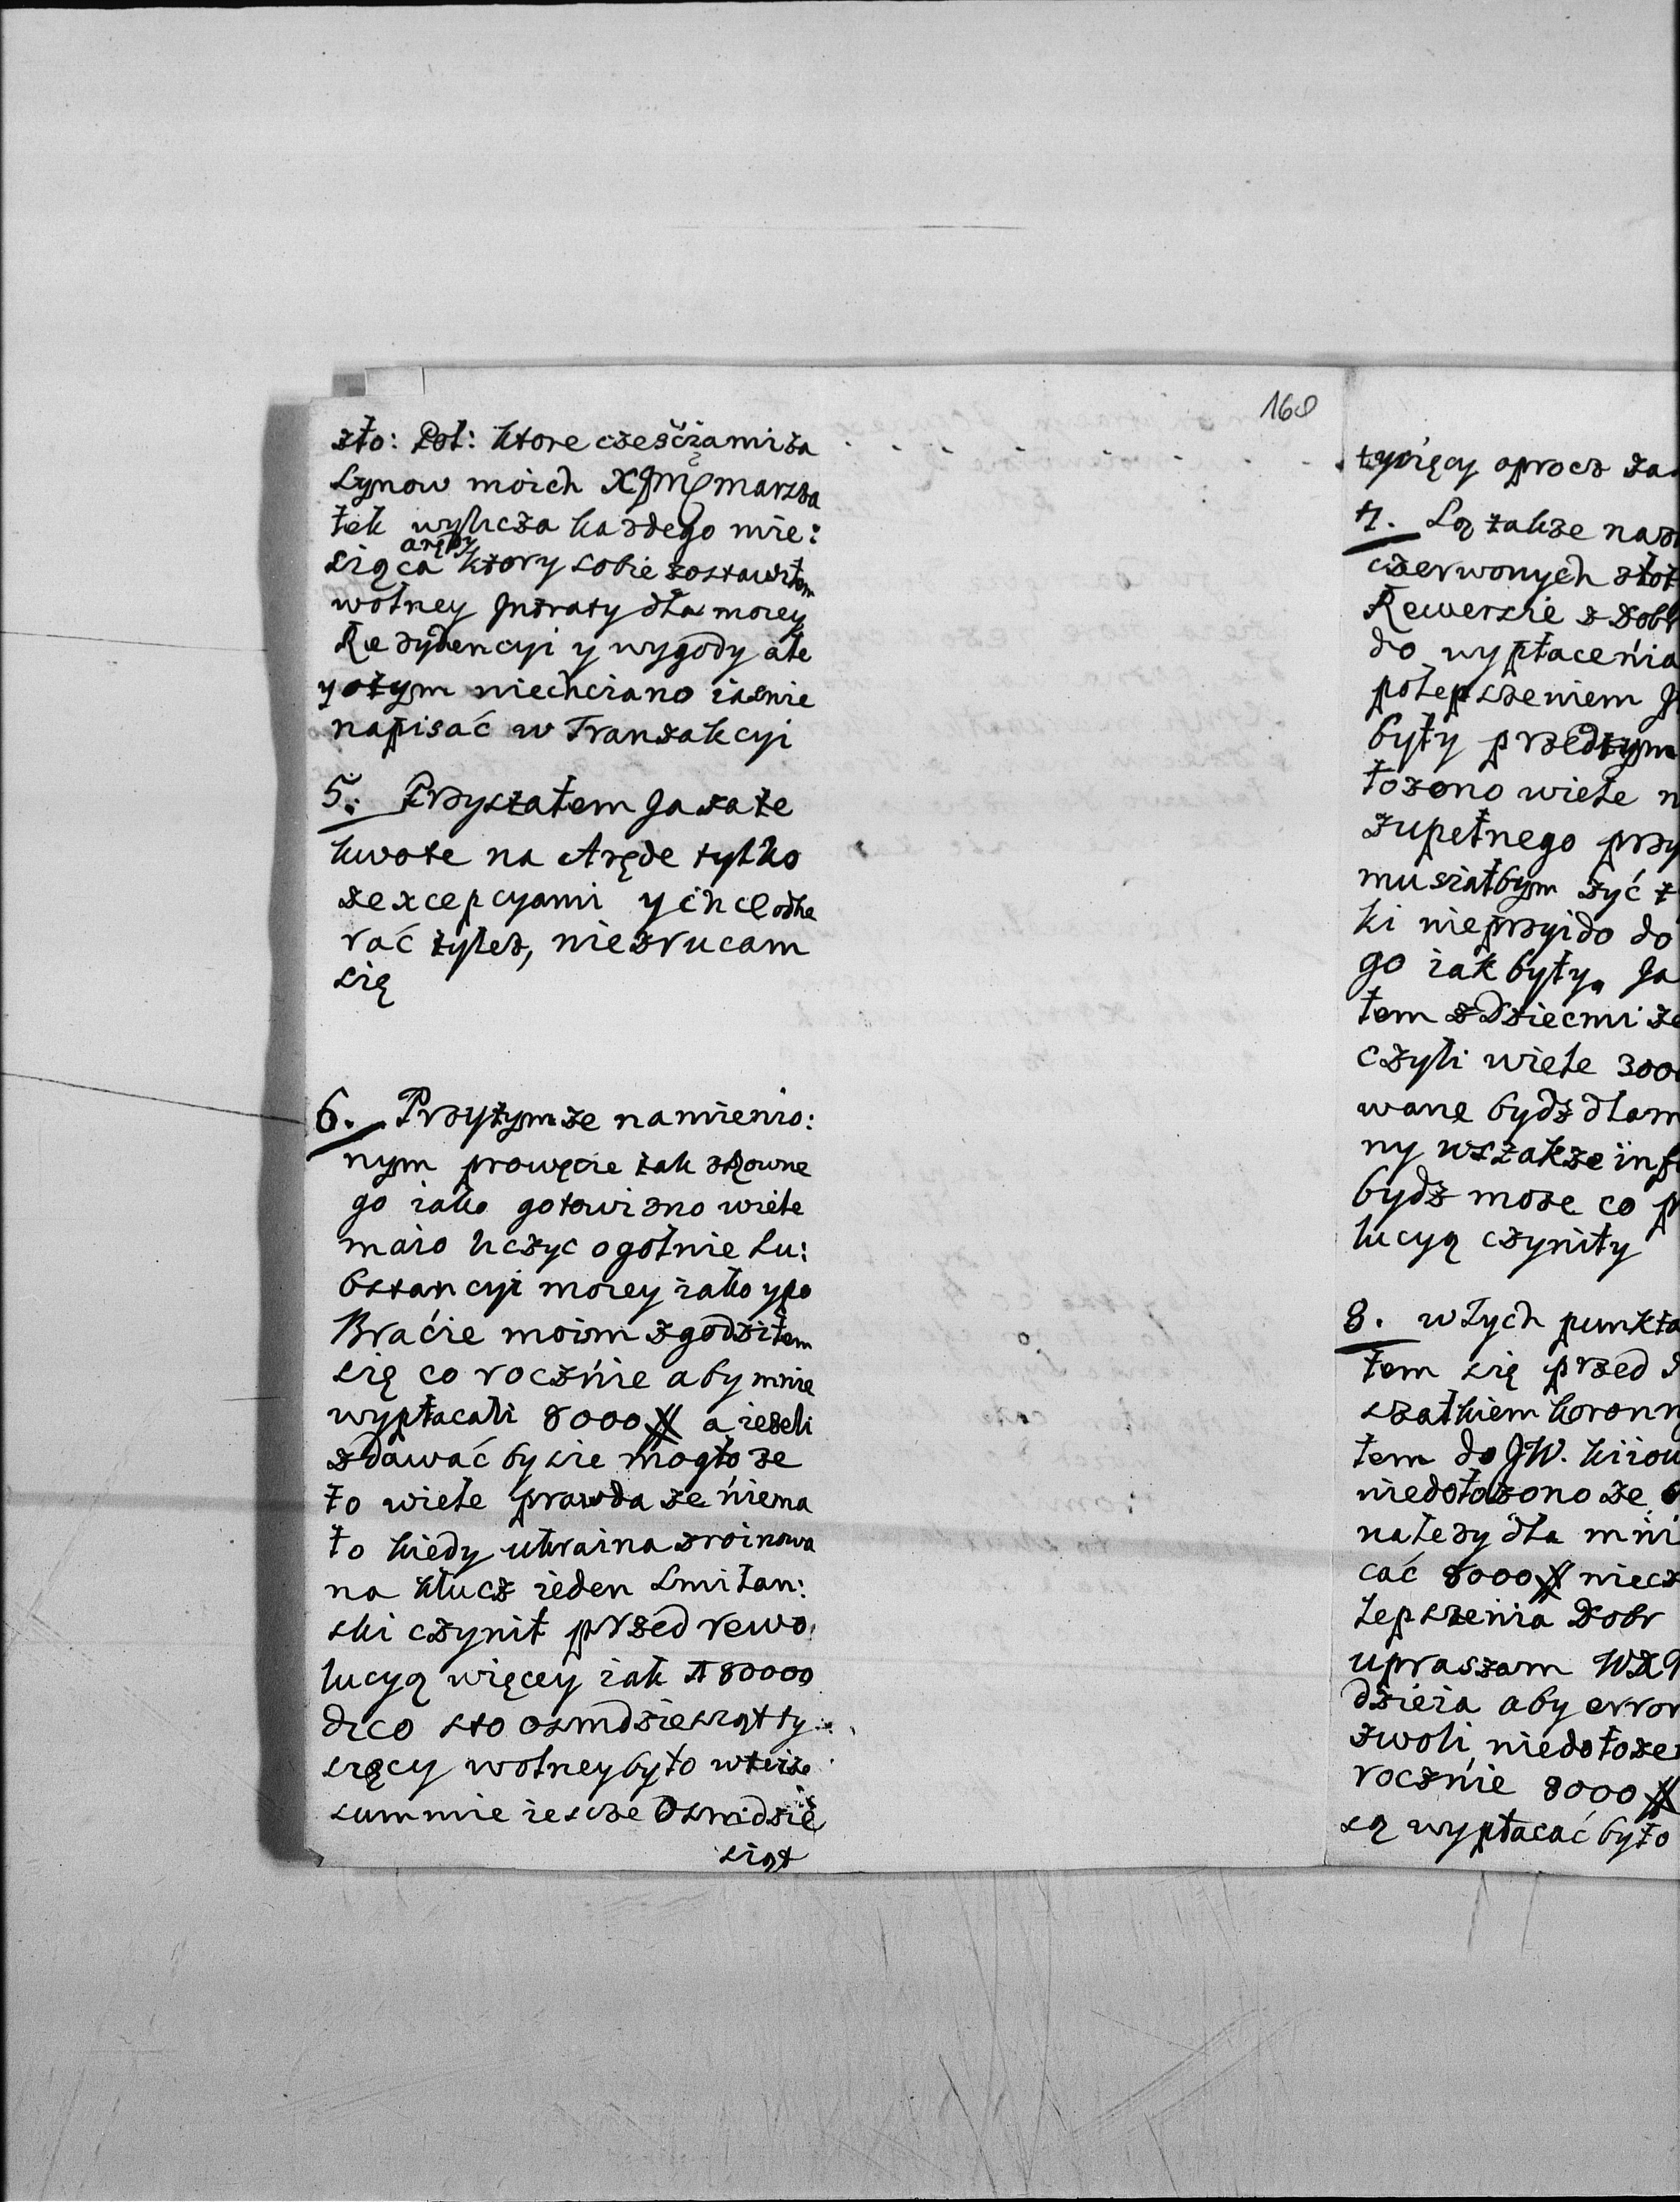 168
zło: Pol: ktore cześciami za
Synow moich XJMę marsza
łek wylicza kazdego mie:
siąca arędy ktory sobie zostawiłem
wolney Jntraty dla moiey
Rezydencyi y wygody ale
y otym niechciano iasnie
napisać w Tranzakcyi
5. Przystałem Ja za te
kwote na Aręde tylko
zexcepcyami y ich ode
rać tylez, niezrucam
się
6. Przytymze namienio:
nym prowęcie tak
go iako gotowizno wiele
maio liczyc ogolnie Su:
bstancyi moiey iako ypo
Braćie moim zgodziłem
się co rocznie aby mnie
wypłacali 8000 # a iezeli
zdawać by sie mogło ze
to wiele prawda ze niema
to kiedy ukraina zroinowa
na klucz ieden Smilan:
ski czynił przed rewo
lucyą więcey iak 180000
dico sto osmdziesiąt ty
sięcy wolney było wteize
summie iescze Osmdzie
siąt
tysięcy oprocz za
7. Są także naz
czerwonych złot
Rewersie z Dobr
do wypłacenia
polepszeniem J
były przedtym
łozono wiele n
zupełnego przy
musiałbym zyć
ki nieprzyido do
go iak były. Ja
łem zDziecmi ze
czyli wiele 300
wane bydz dlam
ny wszakze inf
bydz moze co p
lucyą czyniły
8. w tych punkta
łem się przed
szałkiem koronn
łem do JW. kiiow
niedołozono ze
nalezy dla mni
cać 8000 # niecz
lepszenia Dobr
upraszam WX
dzieia aby error
zwoli niedołoze
rocznie 8000 #
są wypłacać było